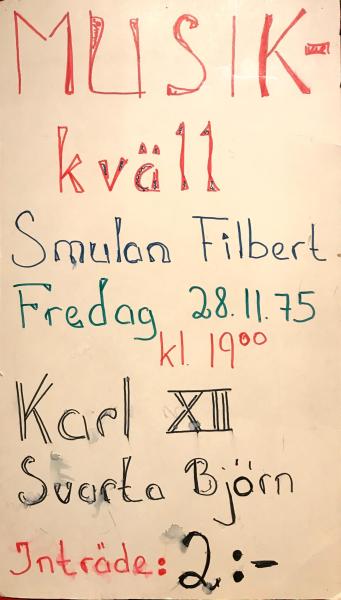 MUSIK-
kväll
Smulan Filbert
Fredag 28.11.75
kl. 19⁰⁰
Karl XII
Svarta Björn
Inträde: 2:-